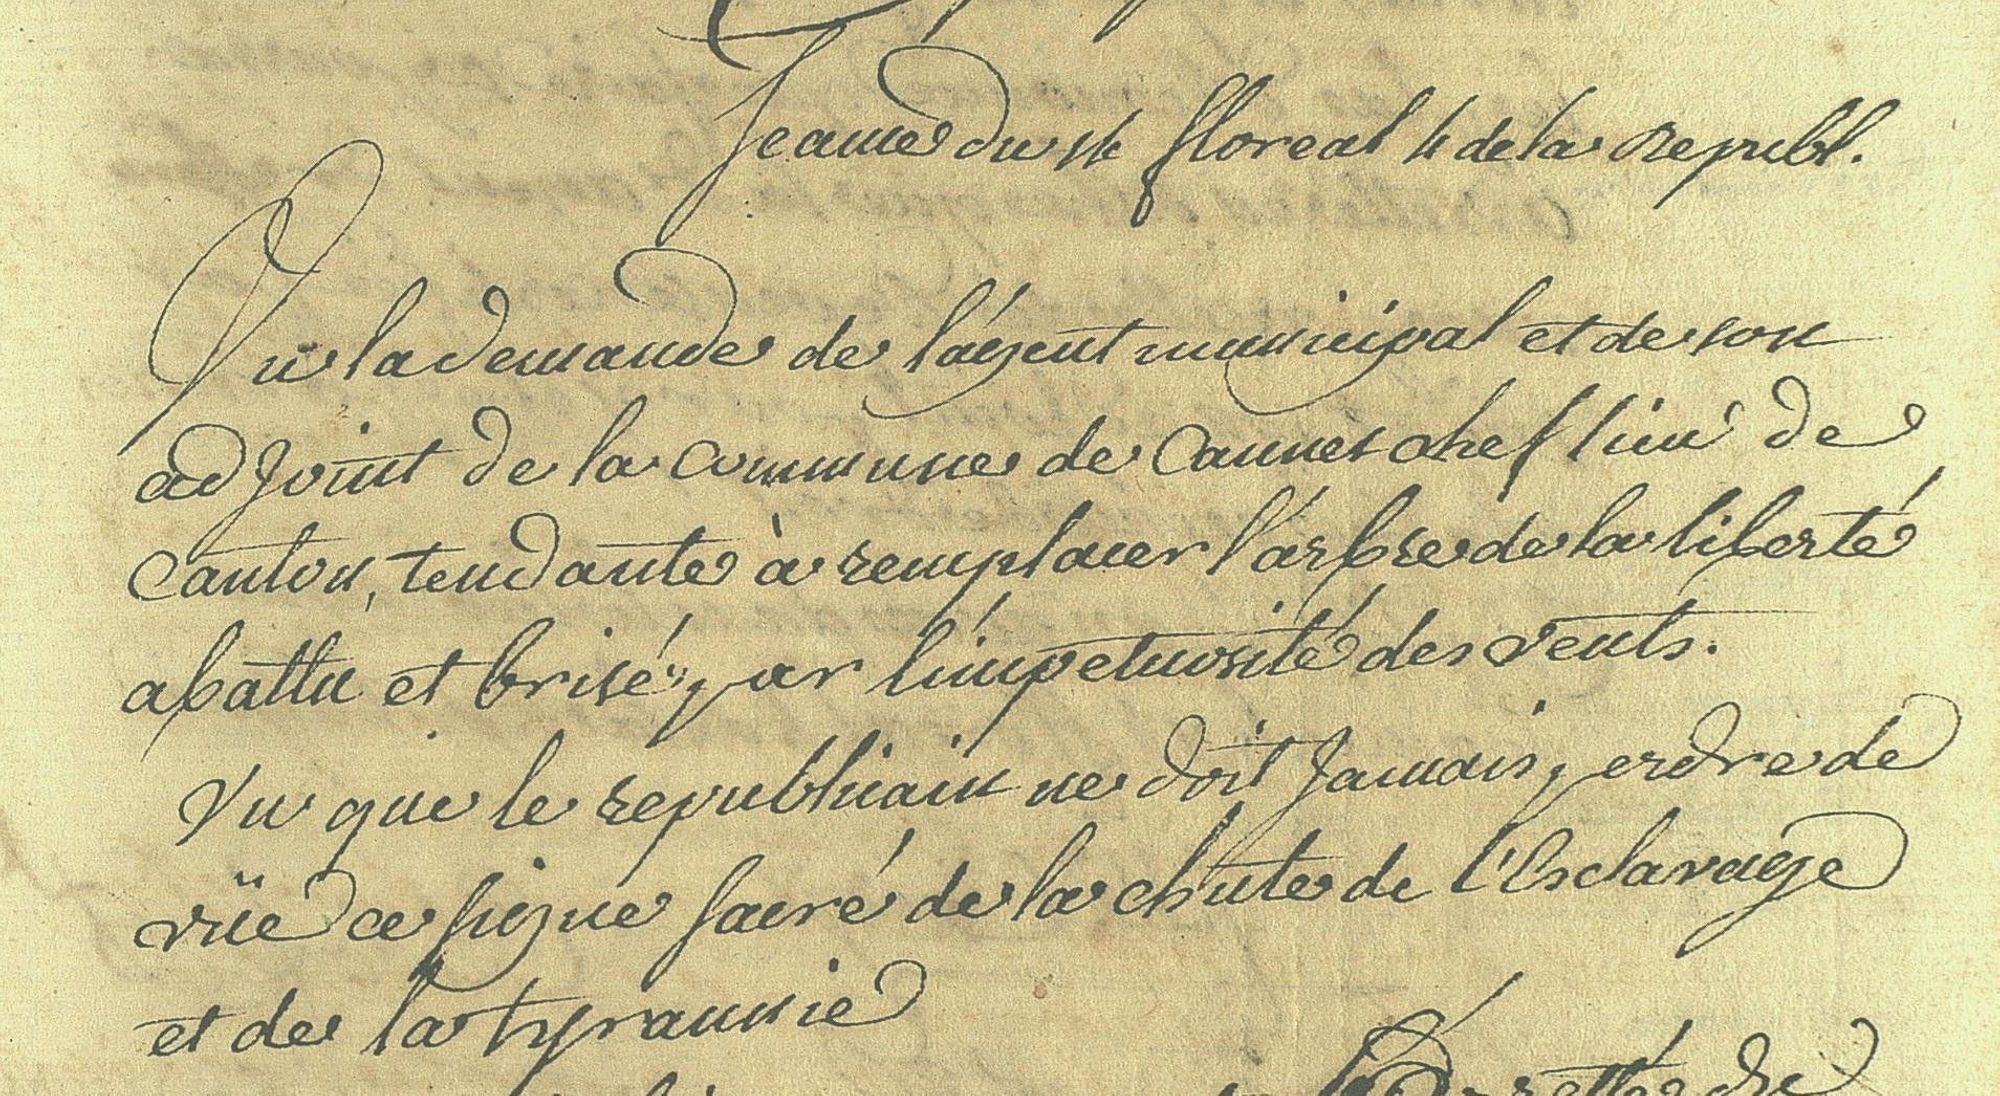 Seance du 14 floreal 4 de la Republ.
Vu la demande de l'agent municipal et de son
adjoint de la commune de Cannes chef lieu de
Canton, tendante à remplacer l'arbre de la liberté
abattu et brisé par l'impetuosité des vents.
Vu que le republicain ne doit Jamais perdre de
vüe ce signe sacré de la chute de l'Esclavage
et de la tyrannie